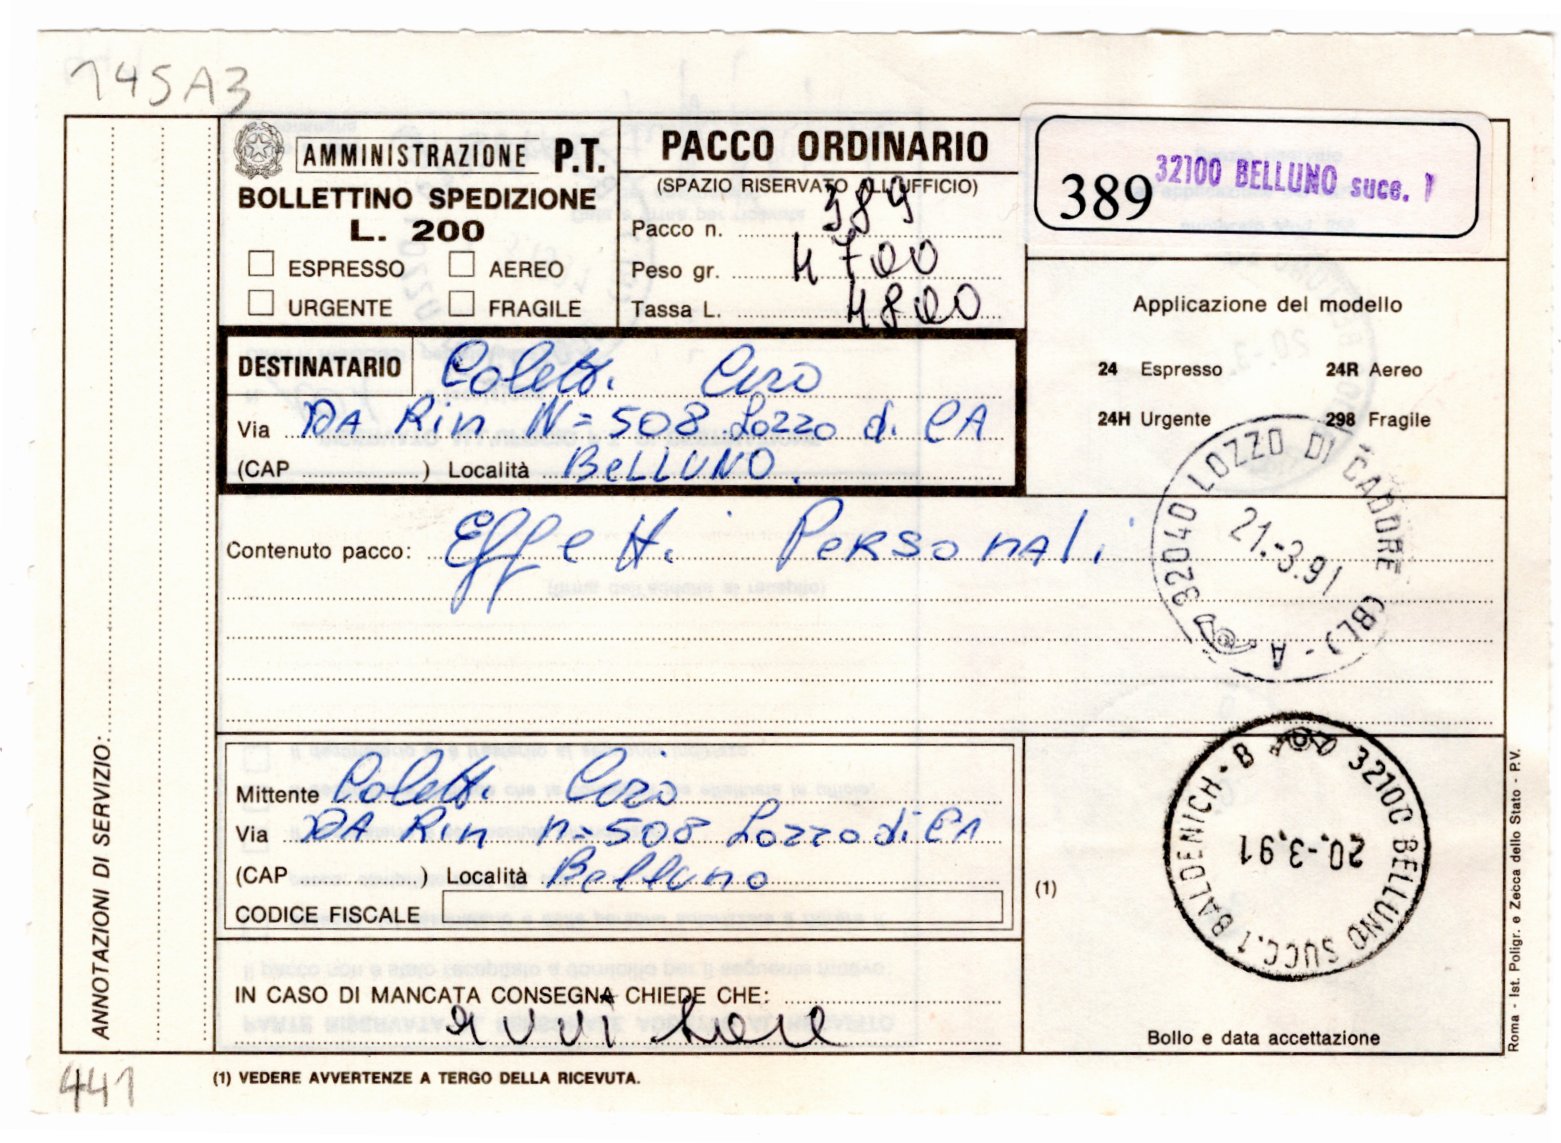 145A3
AMMINISTRAZIONE P.T.
BOLLETTINO SPEDIZIONE
L. 200
ESPRESSO AEREO
URGENTE FRAGILE
PACCO ORDINARIO
(SPAZIO RISERVATO ALL'UFFICIO)
Pacco n. 389
Peso gr. 4700
Tassa L. 4800
389 32100 BELLUNO succ. 1
Applicazione del modello
24 Espresso 24R Aereo
24H Urgente 298 Fragile
DESTINATARIO Coletti Ciro
Via DA Rin N=508 Lozzo di CA
(CAP ) Località BELLUNO.
Contenuto pacco: Effetti Personali
32040 LOZZO DI CADORE (BL) - A
21.-3.91
Mittente Coletti Ciro
Via DA Rin n=508 Lozzo di CA
(CAP ) Località Belluno
CODICE FISCALE
32100 BELLUNO SUCC.1 BALDENICH - B
20.-3.91
(1)
IN CASO DI MANCATA CONSEGNA CHIEDE CHE:
Bollo e data accettazione
ANNOTAZIONI DI SERVIZIO:
Roma - Ist. Poligr. e Zecca dello Stato - P.V.
441
(1) VEDERE AVVERTENZE A TERGO DELLA RICEVUTA.